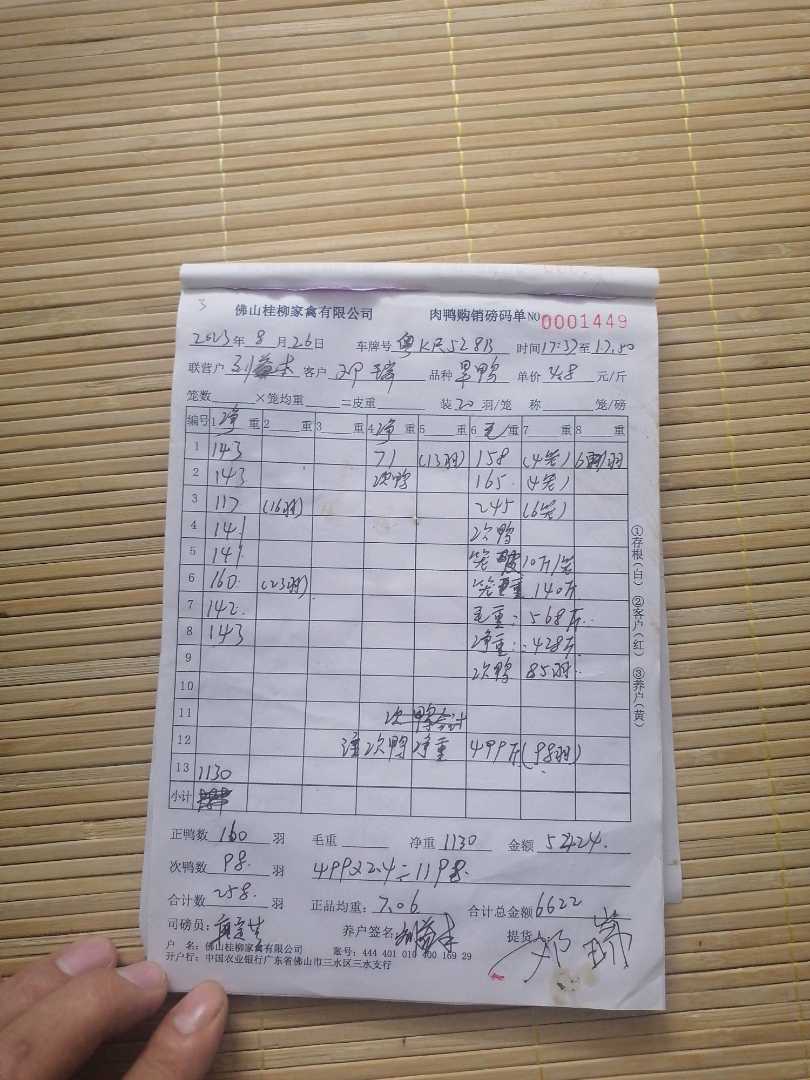 3
佛山桂柳家禽有限公司 肉鸭购销磅码单 NO 0001449
2023年 8月 26日 车牌号 粤KR528B 时间17:37至17:50
联营户 客户 邓瑞 品种 旱鸭 单价 4.8 元/斤
笼数 ×笼均重 =皮重 装20羽/笼 称 笼/磅
编号 1净重 2 重 3 重 4净重 5 重 6毛重 7 重 8 重
1 143 71 (13羽) 158 (4笼) 6羽
2 143 次鸭 165 (4笼)
3 117 (16羽) 245 (6笼)
4 141 次鸭
5 141 笼 10斤/笼
6 160 (23羽) 笼重 140斤
7 142 毛重: 568斤
8 143 净重: 428斤
9 次鸭 85羽
10
11
12 次鸭净重 499斤(98羽)
13 1130
小计
①存根(白) ②客户(红) ③养户(黄)
正鸭数 160 羽 毛重 净重 1130 金额 5424.
次鸭数 98. 羽 499×2.4=1198.
合计数 258. 羽 正品均重: 7.06 合计总金额 6622
司磅员: 养户签名: 提货人: 邓瑞
户 名: 佛山桂柳家禽有限公司 账号: 444 401 010 400 169 29
开户行: 中国农业银行广东省佛山市三水区三水支行